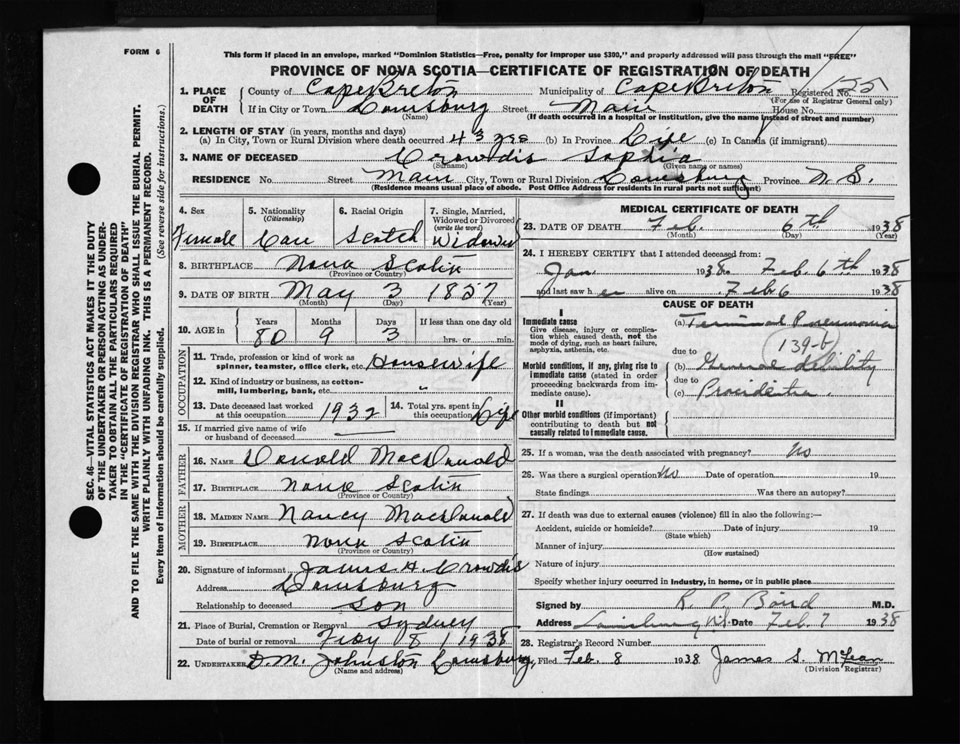 FORM 6
This form if placed in an envelope, marked "Dominion Statistics—Free, penalty for improper use $300," and properly addressed will pass through the mail "FREE"
PROVINCE OF NOVA SCOTIA—CERTIFICATE OF REGISTRATION OF DEATH
1. PLACE OF DEATH
County of Cape Breton Municipality of Cape Breton Registered No. 125
(For use of Registrar General only)
If in City or Town Louisburg Street Main House No.
(Name) (If death occurred in a hospital or institution, give the name instead of street and number)
2. LENGTH OF STAY (in years, months and days)
(a) In City, Town or Rural Division where death occurred 43 yrs (b) In Province Life (c) In Canada (if immigrant)
3. NAME OF DECEASED Crowdis Sophia
(Surname) (Given name or names)
RESIDENCE No. Street Main City, Town or Rural Division Louisburg Province N.S.
(Residence means usual place of abode. Post Office Address for residents in rural parts not sufficient)
4. Sex 5. Nationality (Citizenship) 6. Racial Origin 7. Single, Married, Widowed or Divorced (write the word)
Female Can Scotch Widow
8. BIRTHPLACE Nova Scotia
(Province or Country)
9. DATE OF BIRTH May 3 1857
(Month) (Day) (Year)
10. AGE in Years Months Days If less than one day old
80 9 3 hrs. or min.
OCCUPATION
11. Trade, profession or kind of work as spinner, teamster, office clerk, etc. Housewife
12. Kind of industry or business, as cotton-mill, lumbering, bank, etc. "
13. Date deceased last worked at this occupation 1932 14. Total yrs. spent in this occupation Life
15. If married give name of wife or husband of deceased
FATHER
16. NAME Donald MacDonald
17. BIRTHPLACE Nova Scotia
(Province or Country)
MOTHER
18. MAIDEN NAME Nancy MacDonald
19. BIRTHPLACE Nova Scotia
(Province or Country)
20. Signature of informant James H. Crowdis
Address Louisburg
Relationship to deceased Son
21. Place of Burial, Cremation or Removal Sydney
Date of burial or removal 8 1938
22. UNDERTAKER D.M. Johnston Louisburg
(Name and address)
MEDICAL CERTIFICATE OF DEATH
23. DATE OF DEATH Feb. 6th 1938
(Month) (Day) (Year)
24. I HEREBY CERTIFY that I attended deceased from:
Jan 1938 Feb. 6th 1938
and last saw her alive on Feb 6 1938
CAUSE OF DEATH
I
Immediate cause
Give disease, injury or complication which caused death, not the mode of dying, such as heart failure, asphyxia, asthenia, etc.
(a) Terminal Pneumonia
139-b
due to
Morbid conditions, if any, giving rise to immediate cause (stated in order proceeding backwards from immediate cause).
(b) General debility
due to
(c) Procidentia
II
Other morbid conditions (if important) contributing to death but not causally related to immediate cause.
25. If a woman, was the death associated with pregnancy? No
26. Was there a surgical operation No Date of operation 19
State findings Was there an autopsy?
27. If death was due to external causes (violence) fill in also the following:—
Accident, suicide or homicide? Date of injury 19
(State which)
Manner of injury
(How sustained)
Nature of injury
Specify whether injury occurred in industry, in home, or in public place
Signed by M.D.
Address Louisburg N.S. Date Feb. 7 1938
28. Registrar's Record Number
Filed Feb. 8 1938 James S. McLean
(Division Registrar)
SEC. 46—VITAL STATISTICS ACT MAKES IT THE DUTY
OF THE UNDERTAKER OR PERSON ACTING AS UNDER-
TAKER TO OBTAIN ALL THE PARTICULARS REQUIRED
IN THE "CERTIFICATE OF REGISTRATION OF DEATH"
AND TO FILE THE SAME WITH THE DIVISION REGISTRAR WHO SHALL ISSUE THE BURIAL PERMIT.
WRITE PLAINLY WITH UNFADING INK. THIS IS A PERMANENT RECORD.
Every item of information should be carefully supplied. (See reverse side for instructions.)